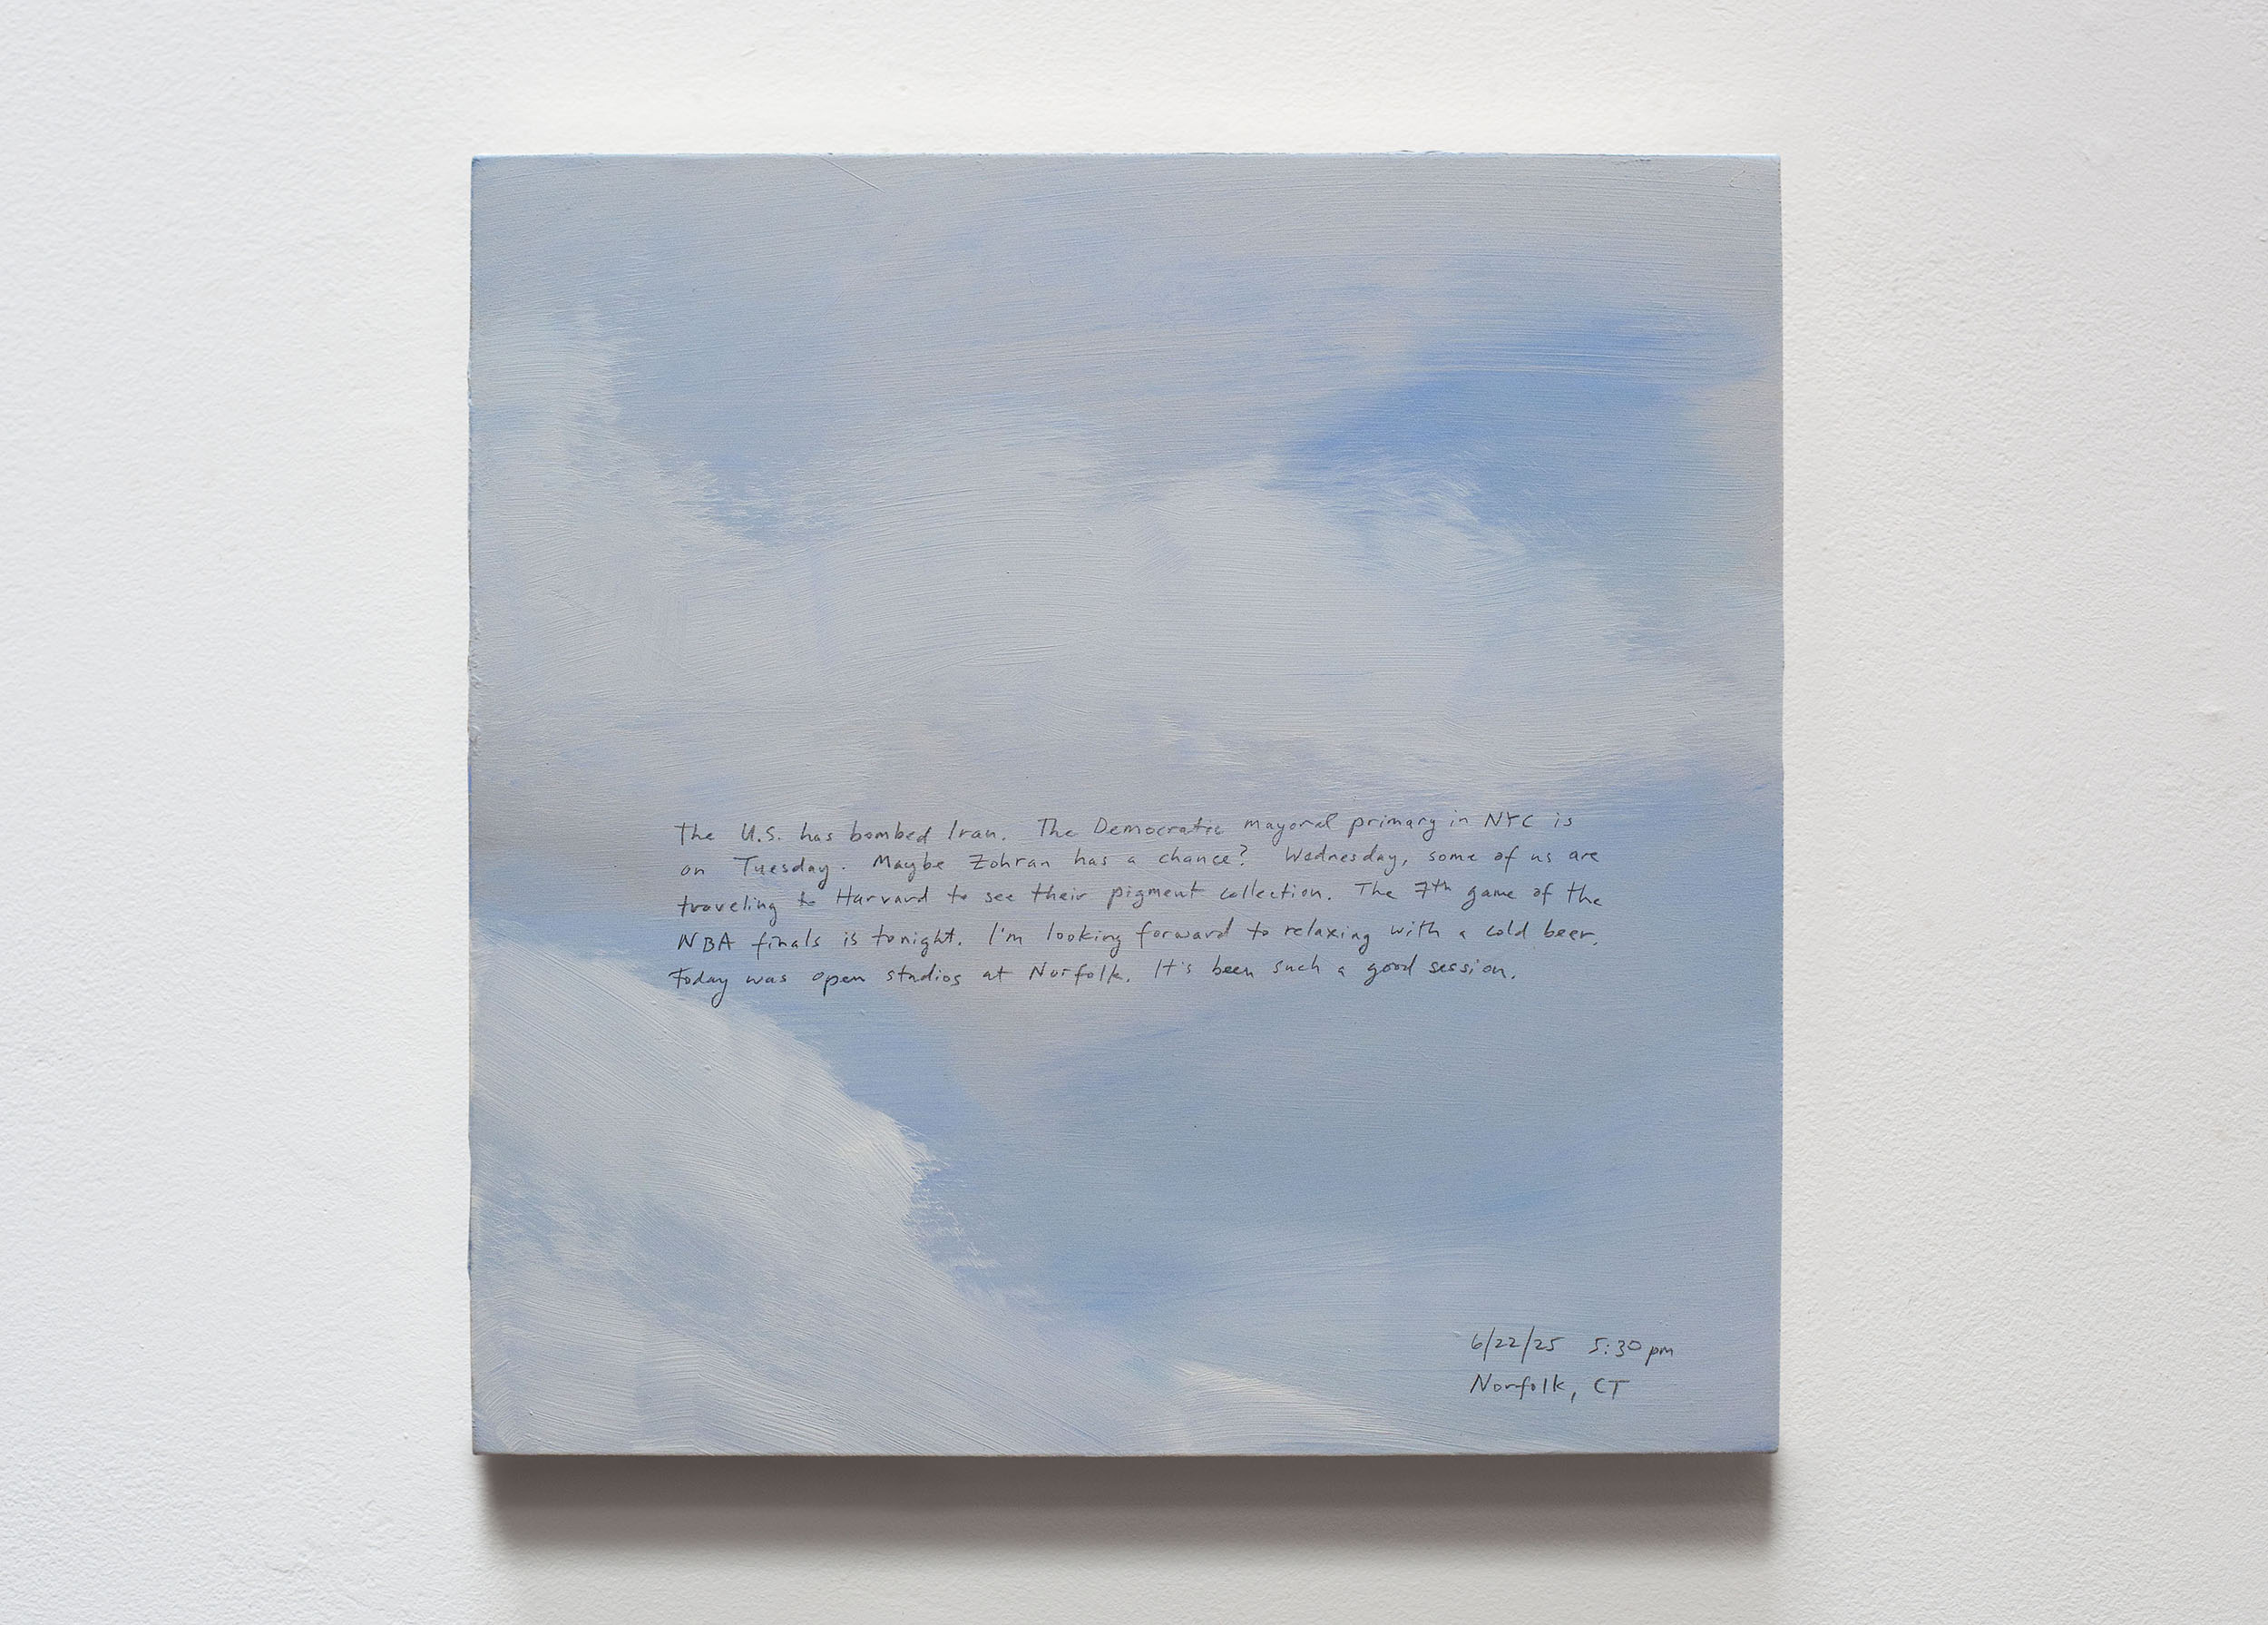 The U.S. has bombed Iran. The Democratic mayoral primary in NYC is
on Tuesday. Maybe Zohran has a chance? Wednesday, some of us are
traveling to Harvard to see their pigment collection. The 7th game of the
NBA finals is tonight. I'm looking forward to relaxing with a cold beer.
Today was open studios at Norfolk. It's been such a good session.
6/22/25 5:30 pm
Norfolk, CT